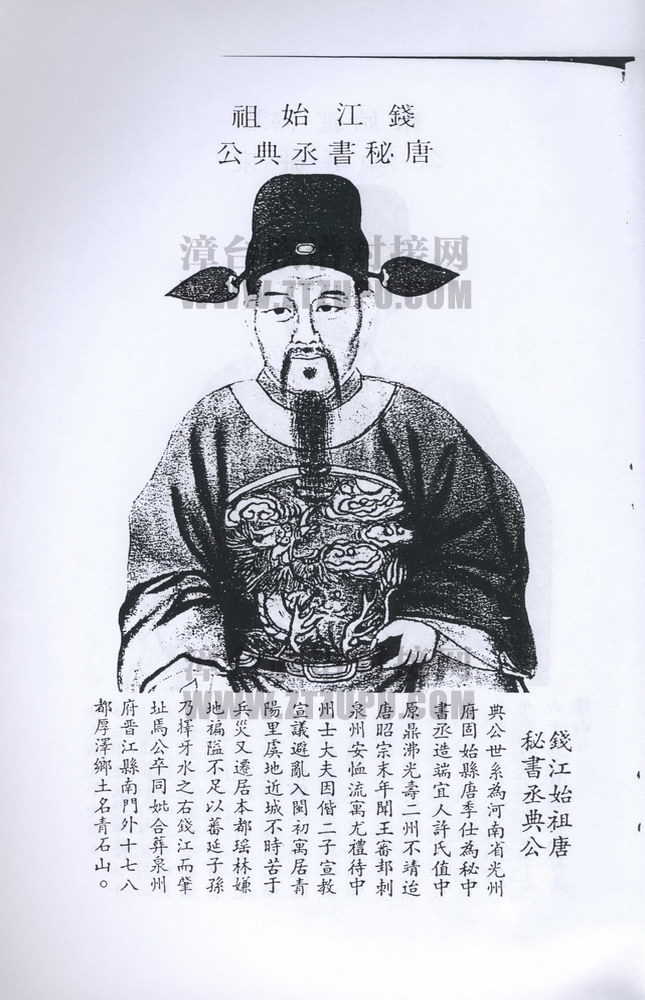 錢江始祖
唐秘書丞典公
WWW.ZTZUPU.COM
錢江始祖唐
秘書丞典公
典公世系為河南省光州
府固始縣唐季仕為秘中
書丞造端宜人許氏值中
原鼎沸光壽二州不靖迨
唐昭宗末年聞王審邽刺
泉州安恤流寓尤禮待中
州士大夫因偕二子宣教
宣議避亂入閩初寓居青
陽里虞地近城不時苦于
兵災又遷居本都瑤林嫌
地褊隘不足以蕃延子孫
乃擇牙水之右錢江而肇
址焉公卒同妣合葬泉州
府晉江縣南門外十七八
都厚澤鄉土名青石山。